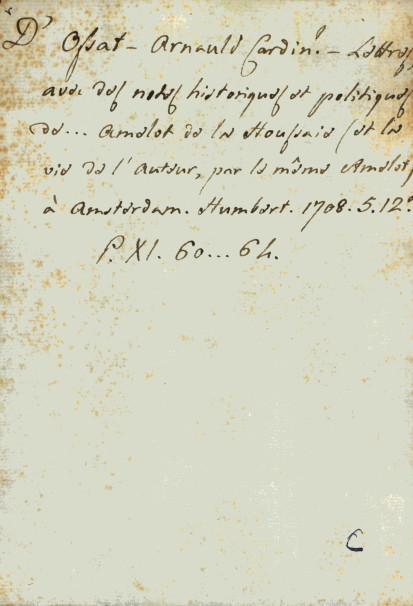 D' Ossat - Arnauld Cardin.l - Lettres
avec des notes historiques et politiques
de... Amelot de la Houssaie (et la
vie de l'Auteur, par le même Amelot)
à Amsterdam. Humbert. 1708. 5. 12.o
P. XI. 60... 64.
C